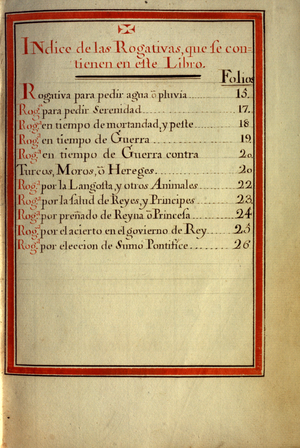 INdice de las Rogativas, que se con=
tienen en este Libro.
Folios
Rogativa para pedir agua ò pluvia 15.
Rog.ª para pedir Serenidad 17.
Rog.ª en tiempo de mortandad, y peste 18
Rog.ª en tiempo de Guerra 19
Rog.ª en tiempo de Guerra contra 20
Turcos, Moros, ò Hereges. 20
Rog.ª por la Langosta, y otros Animales 22
Rog.ª por la salud de Reyes, y Principes 23
Rog.ª por preñado de Reyna ò Princesa 24
Rog.ª por el acierto en el govierno de Rey 25
Rog.ª por eleccion de Sumo Pontifice 26